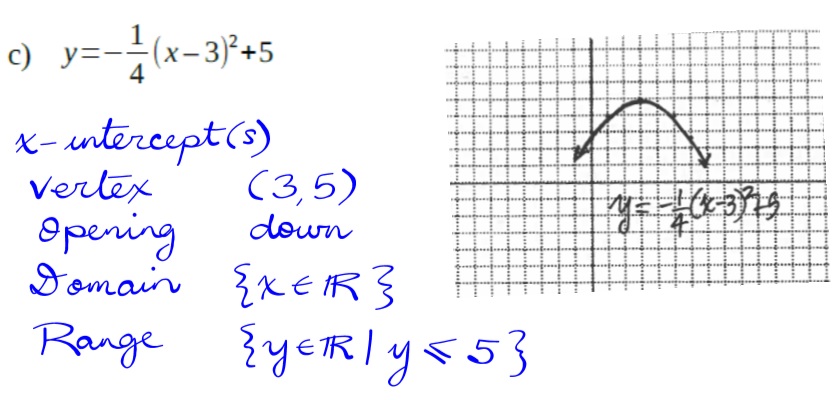 c) y=-1/4(x-3)²+5
x-intercept(s)
Vertex (3,5)
Opening down
Domain {x∈ℝ}
Range {y∈ℝ | y⩽5}
y=-1/4(x-3)²+5